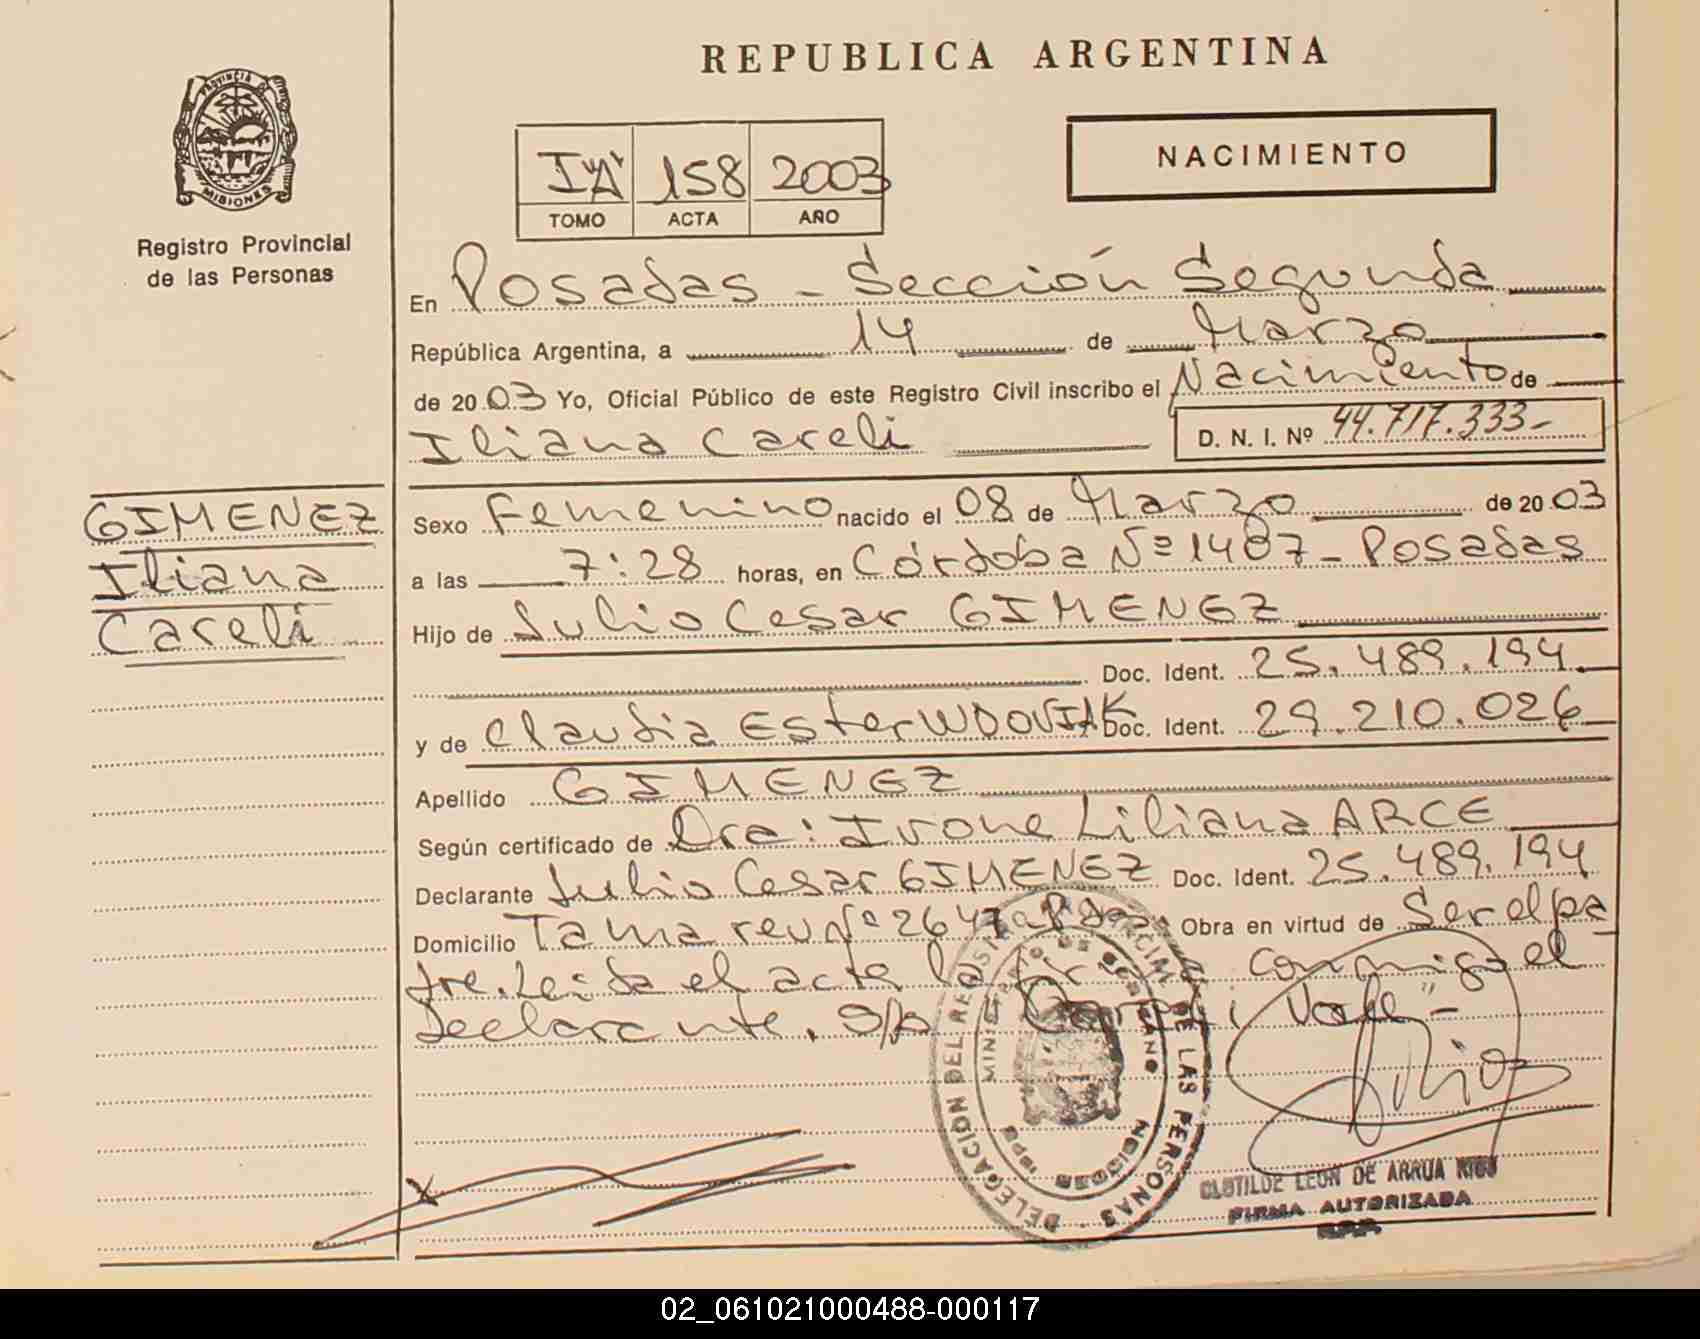 REPUBLICA ARGENTINA
PROVINCIA
MISIONES
Registro Provincial
de las Personas
158 2003
TOMO ACTA AÑO
NACIMIENTO
En Posadas - Sección Segunda
República Argentina, a 14 de Marzo
de 2003 Yo, Oficial Público de este Registro Civil inscribo el Nacimiento de
Iliana Careli D. N. I. Nº 44.717.333-
GIMENEZ
Iliana
Careli
Sexo Femenino nacido el 08 de Marzo de 2003
a las 7:28 horas, en Córdoba Nº 1487 - Posadas
Hijo de Julio Cesar GIMENEZ
Doc. Ident. 25.489.194.
y de Claudia Ester WDOVIAK Doc. Ident. 29.210.026
Apellido GIMENEZ
Según certificado de Dra: Ivone Liliana ARCE
Declarante Julio Cesar GIMENEZ Doc. Ident. 25.489.194
Domicilio Nº 2647 Obra en virtud de Ser el pa
dre. Leida el acta la conmigo el
declarante. Vale"-
DELEGACION DEL REGISTRO PROVINCIAL DE LAS PERSONAS
MINISTERIO DE GOBIERNO
MISIONES
CLOTILDE LEON DE ARRUA RIOS
FIRMA AUTORIZADA
02_061021000488-000117